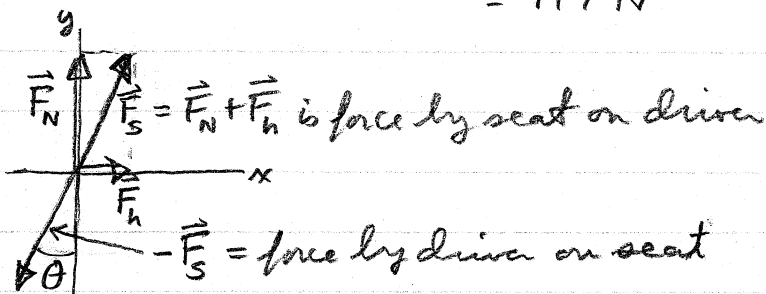 y
F⃗_N
F⃗_S = F⃗_N + F⃗_h is force by seat on driver
x
F⃗_h
-F⃗_S = force by driver on seat
θ